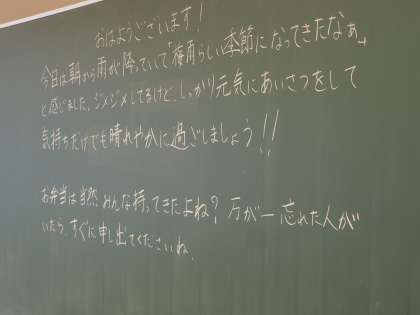 おはようございます！
今日は朝から雨が降っていて「梅雨らしい季節になってきたなぁ」
と感じました。ジメジメしてるけど、しっかり元気にあいさつをして
気持ちだけでも晴れやかに過ごしましょう!!
お弁当は当然みんな持ってきたよね？万が一忘れた人が
いたら、すぐに申し出てくださいね。